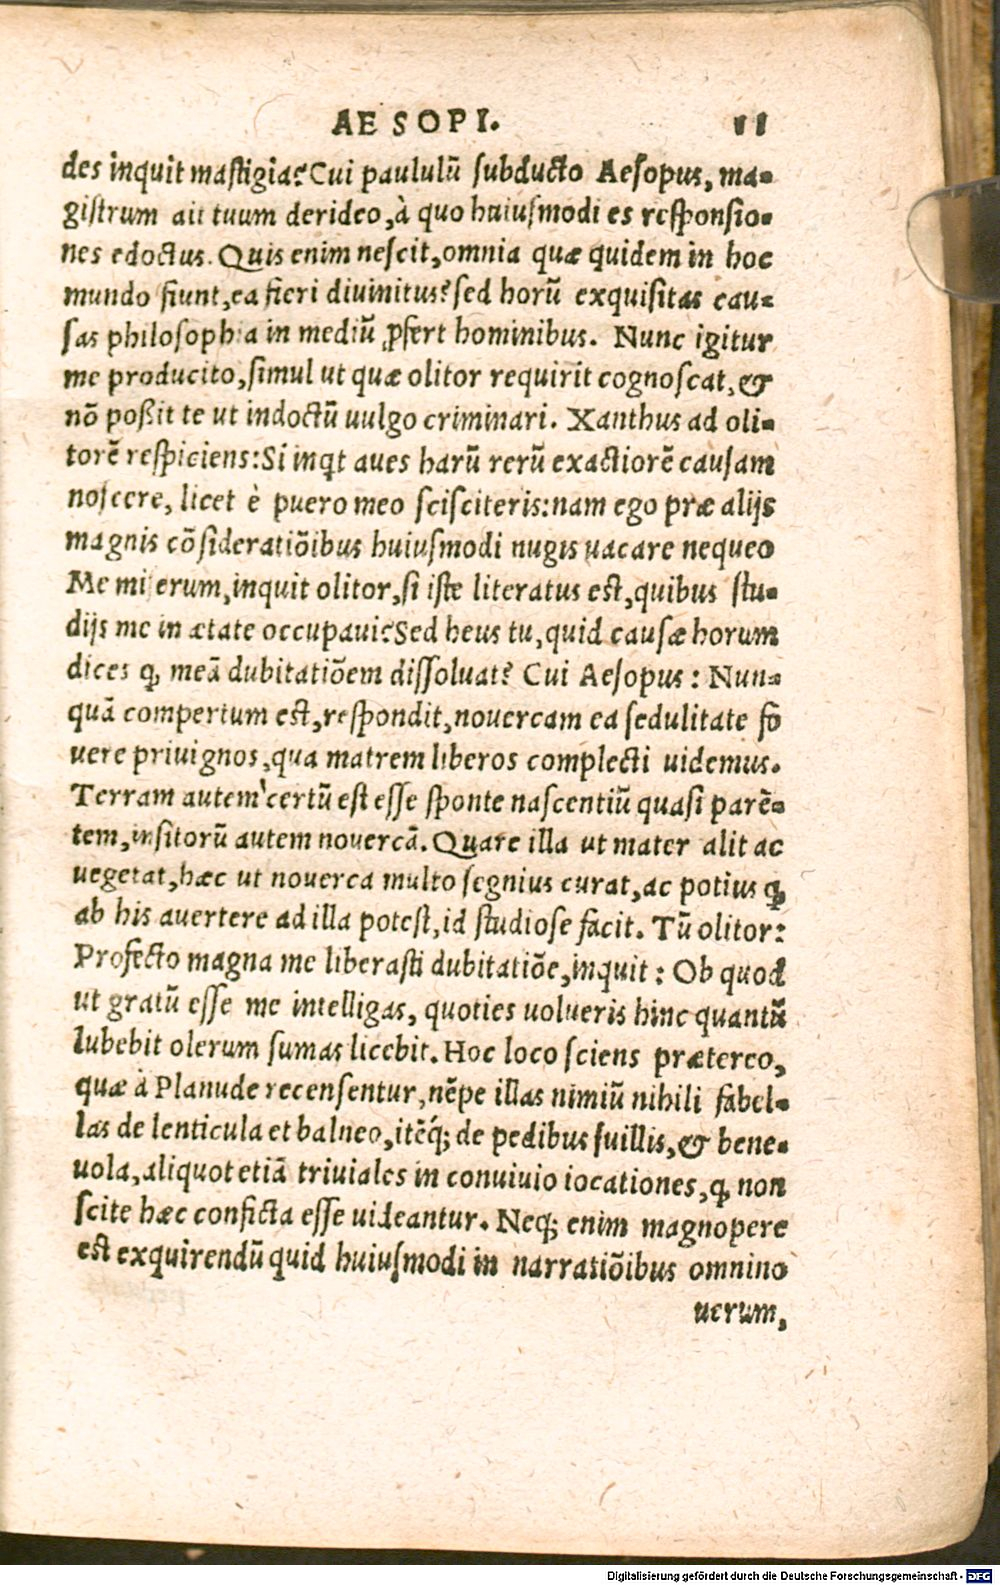 AESOPI. 11
des inquit mastigia? Cui paululū subducto Aesopus, ma-
gistrum ait tuum derideo, à quo huiusmodi es responsio-
nes edoctus. Quis enim nescit, omnia quæ quidem in hoc
mundo fiunt, ea fieri divinitus? sed horū exquisitas cau-
sas philosophia in mediū ꝓfert hominibus. Nunc igitur
me producito, simul ut quæ olitor requirit cognoscat, &
nō poßit te ut indoctū uulgo criminari. Xanthus ad oli-
torē respiciens: Si inqt aues harū rerū exactiorē causam
noscere, licet è puero meo scisciteris: nam ego præ alijs
magnis cōsideratiōibus huiusmodi nugis uacare nequeo
Me miserum, inquit olitor, si iste literatus est, quibus stu-
dijs me in ætate occupaui? Sed heus tu, quid causæ horum
dices ꝙ meā dubitatiōem dissoluat? Cui Aesopus: Nun-
quā compertum est, respondit, nouercam ea sedulitate fo
uere priuignos, qua matrem liberos complecti uidemus.
Terram autem certū est esse sponte nascentiū quasi parē-
tem, insitorū autem nouercā. Quare illa ut mater alit ac
uegetat, hæc ut nouerca multo segnius curat, ac potius ꝙ
ab his auertere ad illa potest, id studiose facit. Tū olitor:
Profecto magna me liberasti dubitatiōe, inquit: Ob quod
ut gratū esse me intelligas, quoties uolueris hinc quantū
lubebit olerum sumas licebit. Hoc loco sciens prætereo,
quæ à Planude recensentur, nēpe illas nimiū nihili fabel-
las de lenticula et balneo, itēq́; de pedibus suillis, & bene-
uola, aliquot etiā triuiales in conuiuio iocationes, ꝙ non
scite hæc conficta esse uideantur. Neq; enim magnopere
est exquirendū quid huiusmodi in narratiōibus omnino
uerum,
Digitalisierung gefördert durch die Deutsche Forschungsgemeinschaft - DFG